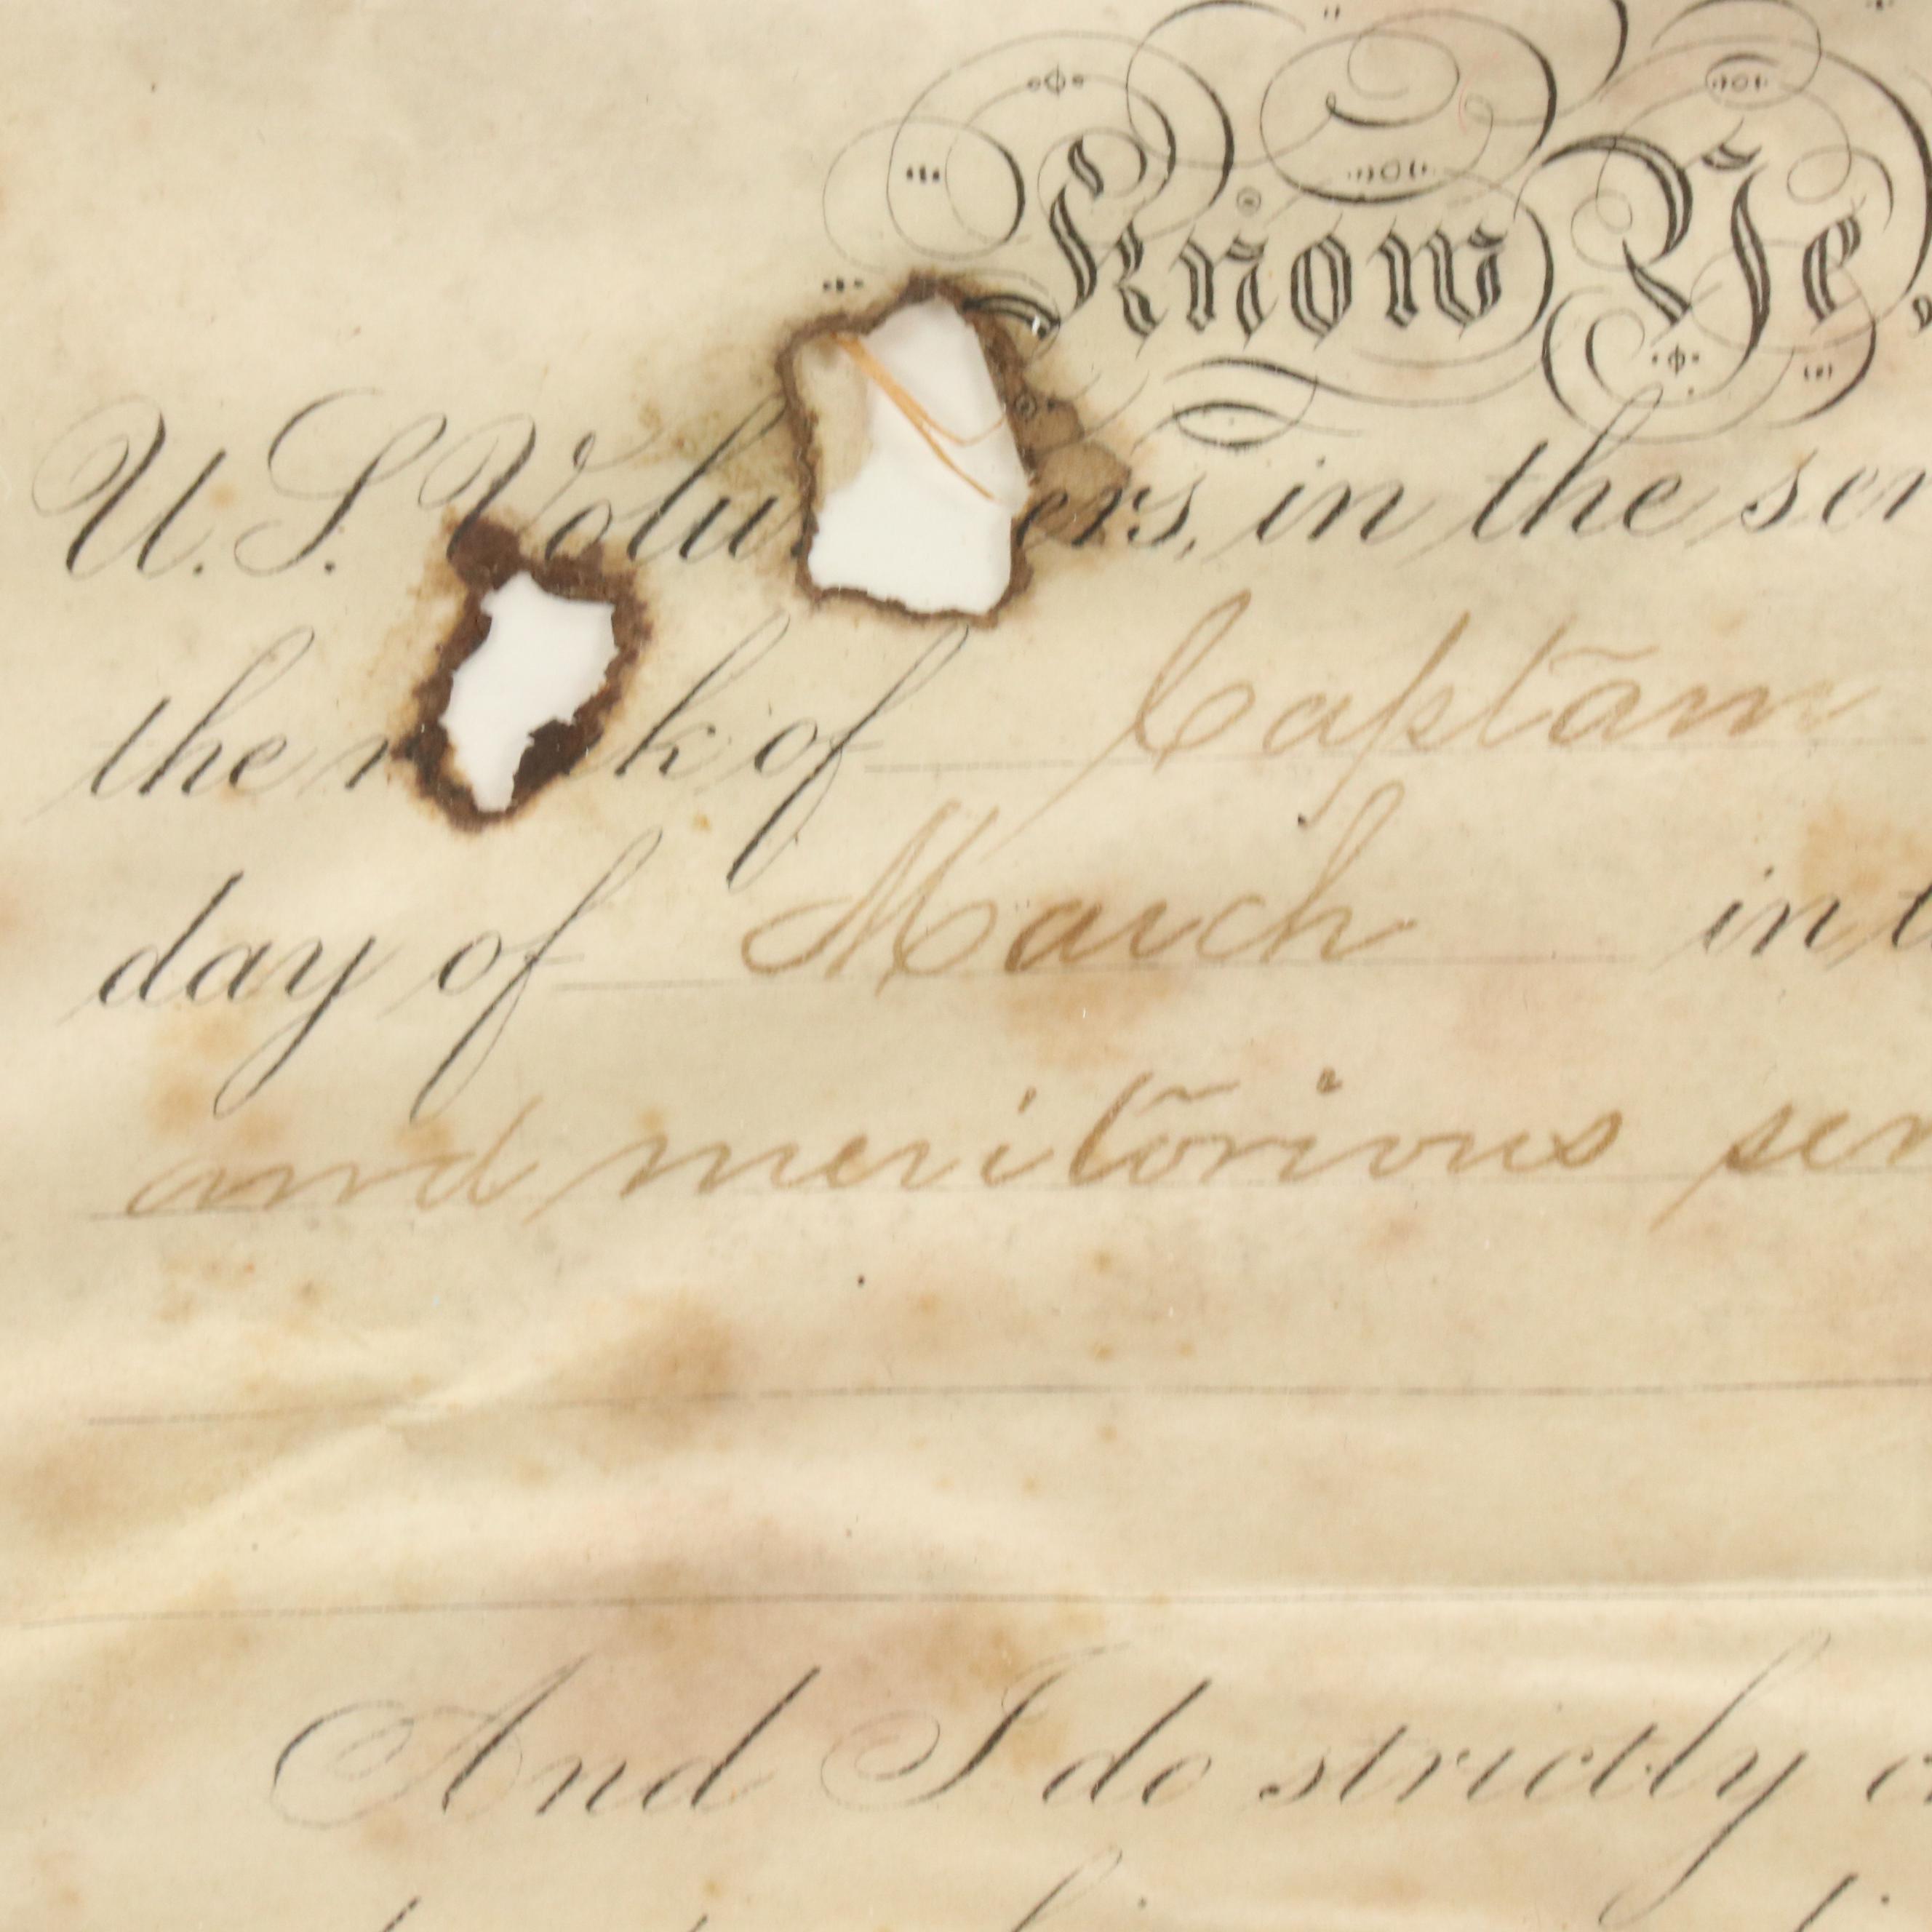 Know Ye,
U.S. Volu ers, in the ser
the r k of Captain
day of March in t
and meritorious ser
And I do strictly c